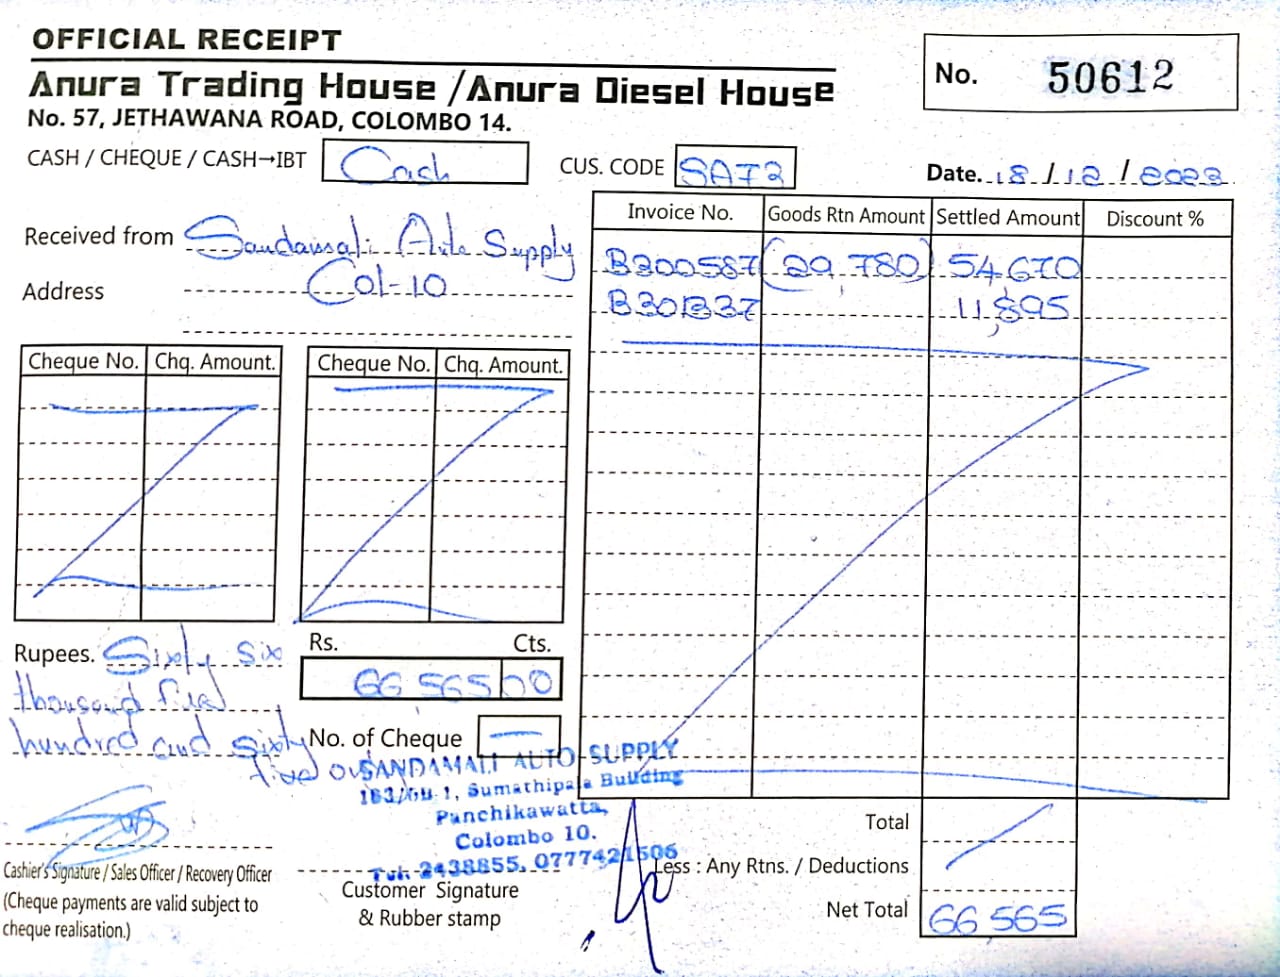 OFFICIAL RECEIPT
Anura Trading House / Anura Diesel House
No. 57, JETHAWANA ROAD, COLOMBO 14.
No. 50612
CASH / CHEQUE / CASH→IBT Cash
CUS. CODE SA72
Date. 18 / 12 / 2023
Received from Sandamali Auto Supply
Address Col-10
Invoice No. Goods Rtn Amount Settled Amount Discount %
B300587 (29,780) 54,670
B301337 11,895
Cheque No. Chq. Amount. Cheque No. Chq. Amount.
Rupees. Sixty six
thousand five
hundred and sixty
five
Rs. Cts.
66 565 00
No. of Cheque —
SANDAMALI AUTO SUPPLY
Sumathipala Building
Panchikawatta,
Colombo 10.
Tel: 2438855, 0777421506
Cashier's Signature / Sales Officer / Recovery Officer
(Cheque payments are valid subject to
cheque realisation.)
Customer Signature
& Rubber stamp
Total
Less : Any Rtns. / Deductions
Net Total 66,565